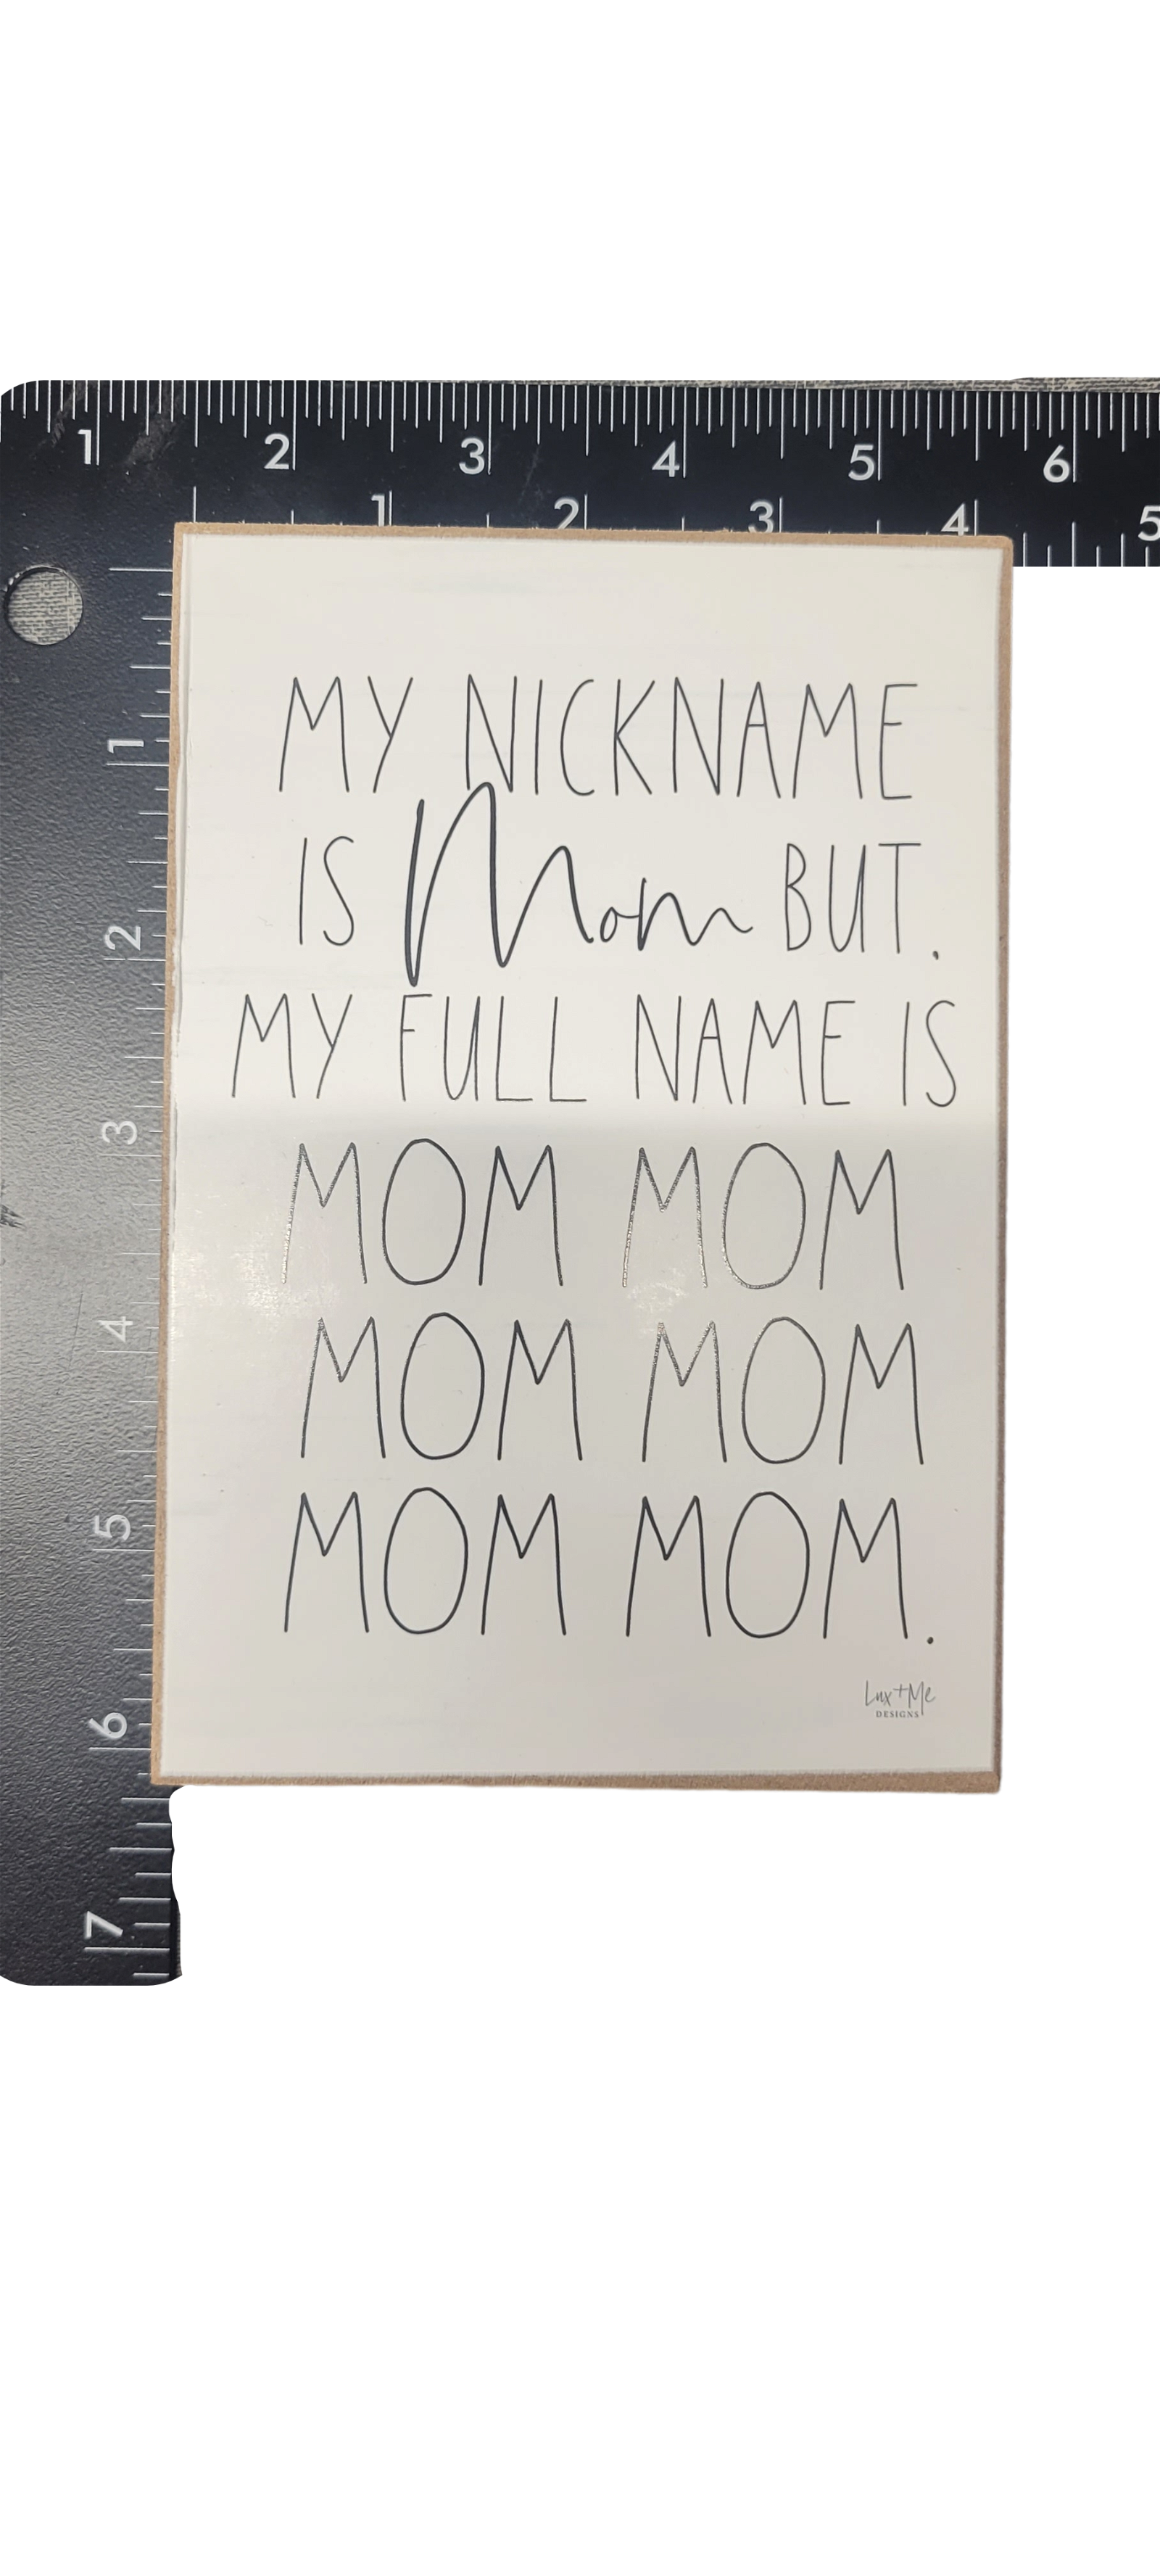 1 2 3 4 5 6
1 2 3 4 5
MY NICKNAME
IS Mom BUT.
MY FULL NAME IS
MOM MOM
MOM MOM
MOM MOM.
Lux+Me
DESIGNS
1
2
3
4
5
6
7